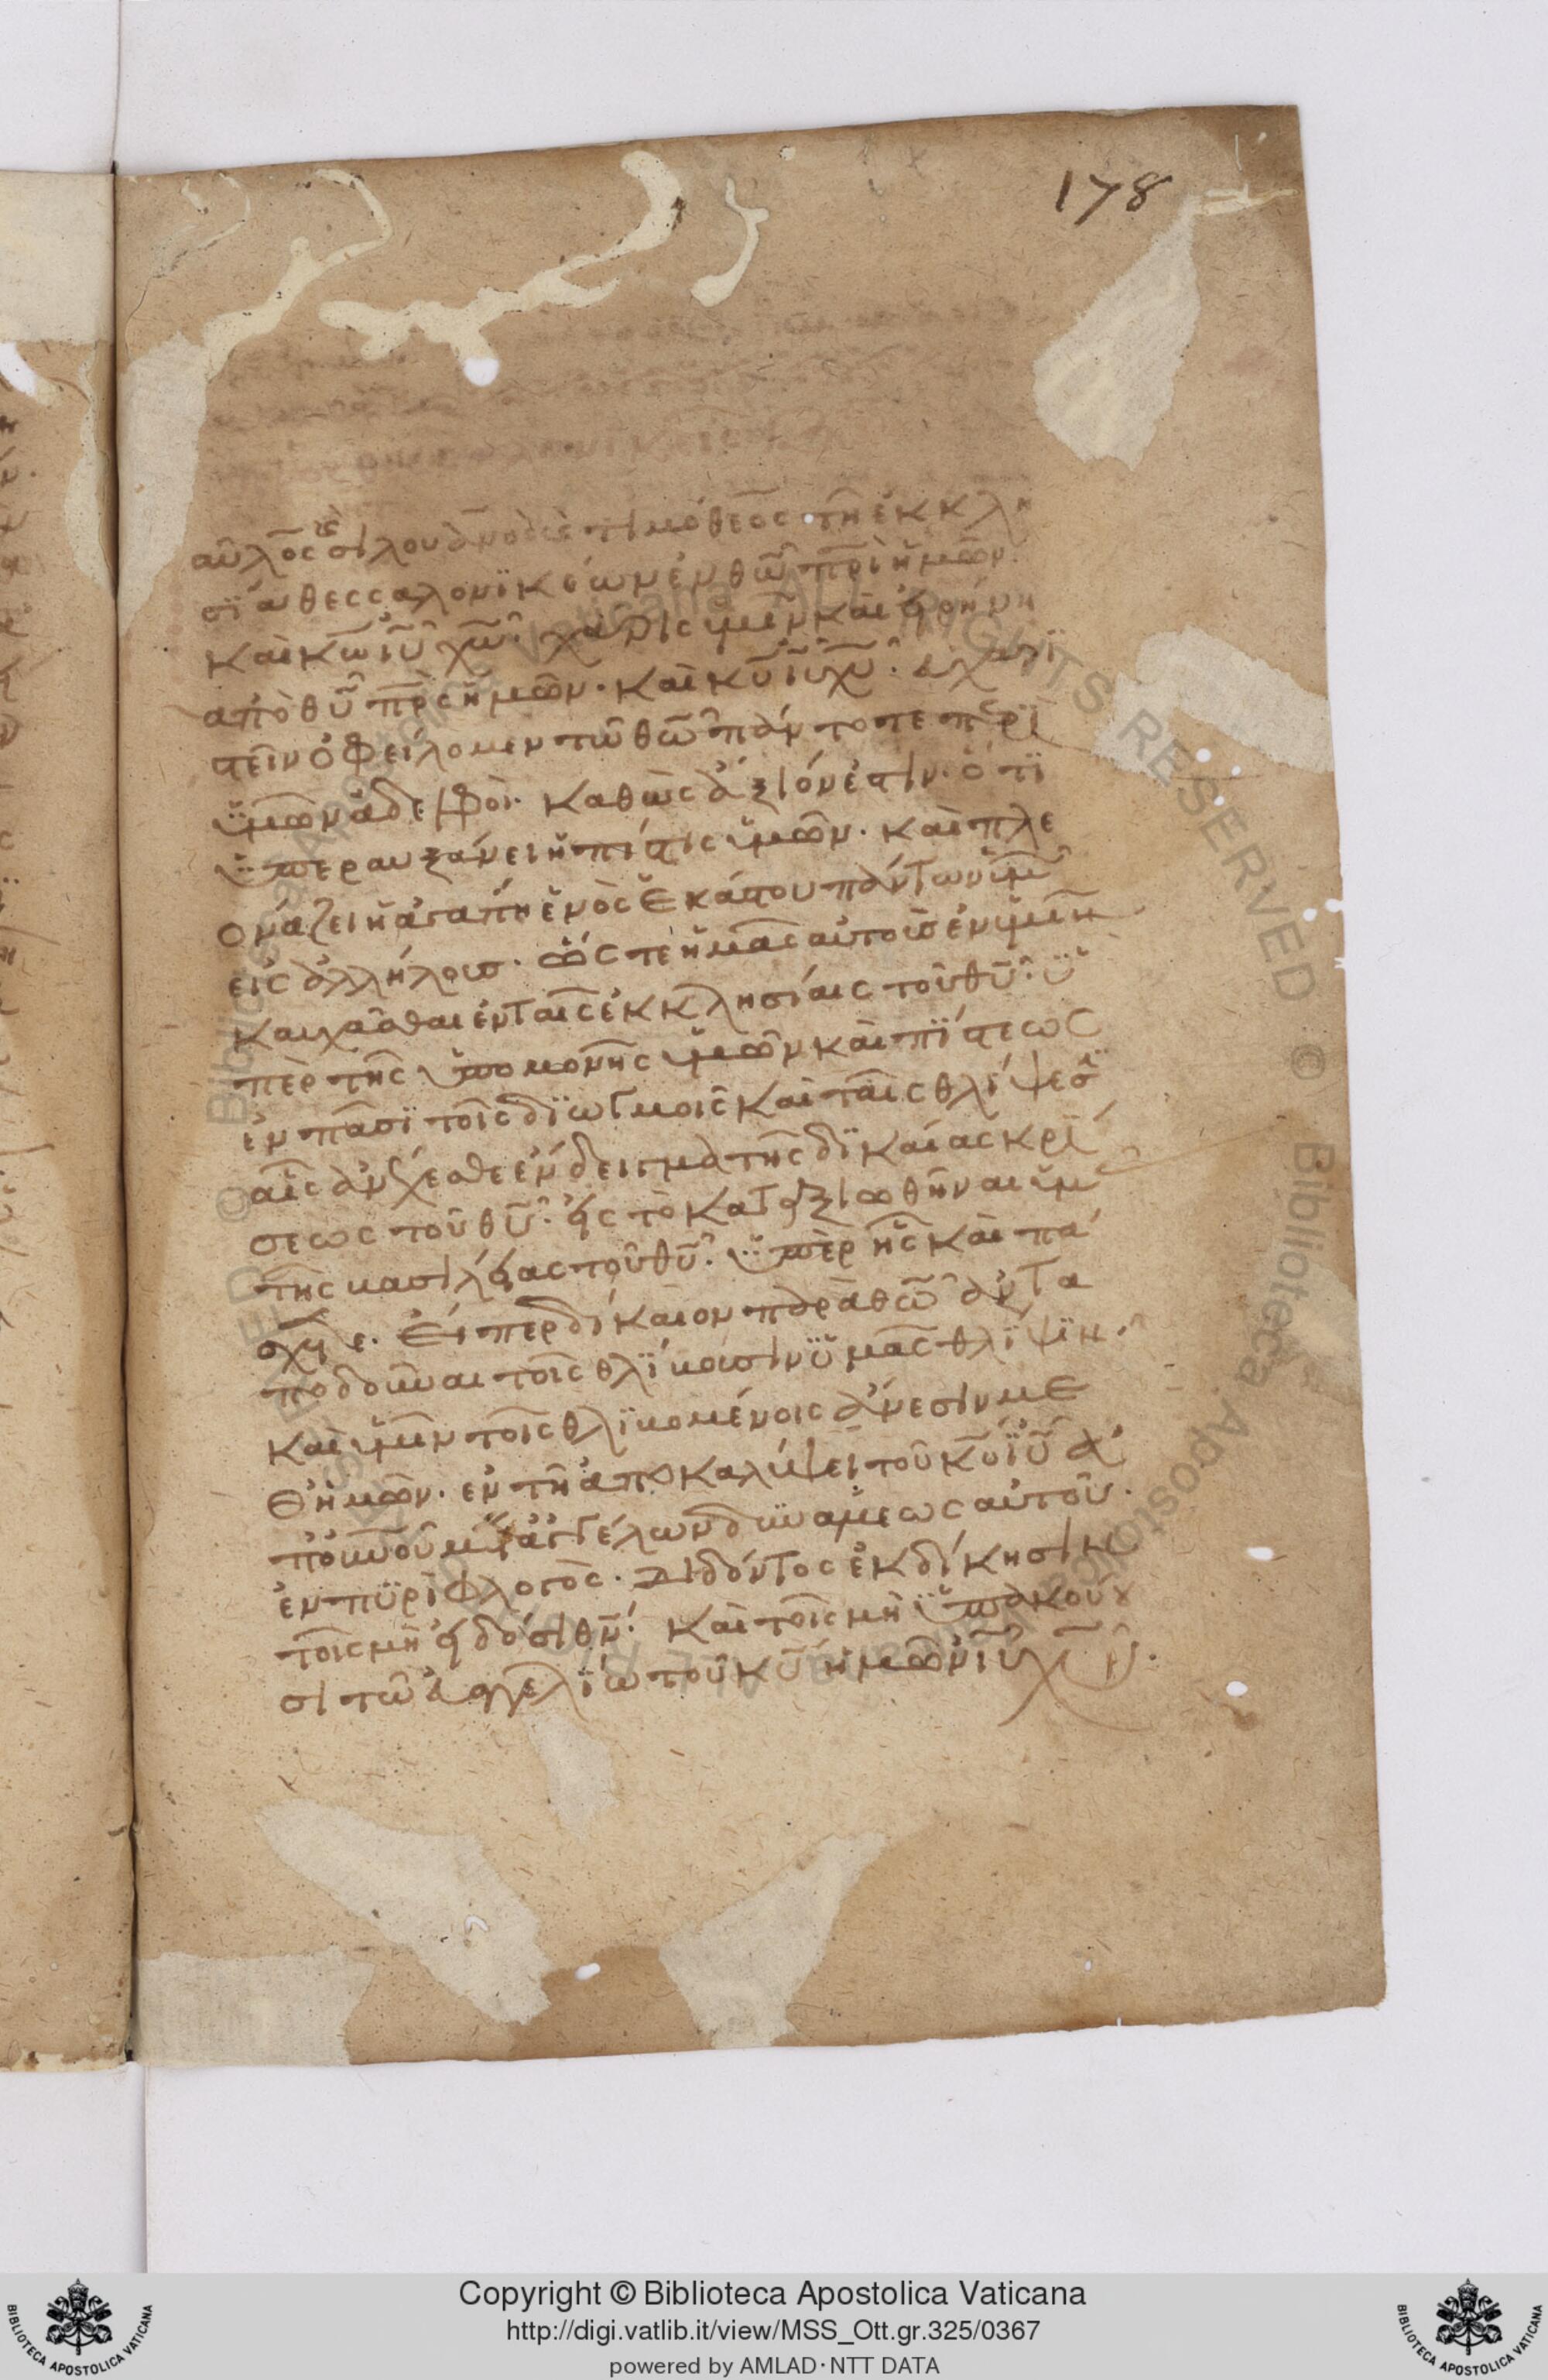 178
αῦλος καὶ σιλουἀνὸς καὶ τιμόθεος· τῆ ἐκκλη
σΐα θεσσαλονϊκέων ἐν θω̅ πρ̅ὶ ἡμῶν·
καὶ κω̅ ιυ̅ χω̅· χάρις ὑμῖν καὶ εἰρήνη
ἀπὸ θυ̅ πρ̅ς ἡμῶν· καὶ κυ̅ ιυ̅ χυ̅· εὐχαρϊ
στεῖν ὀφείλομεν τῶ θω̅ πάντοτε περὶ
ὑμῶν ἀδελφοὶ· καθὼς ἄξιόν ἐστιν· ὅτϊ
ὑπεραυξάνει ἡ πίστις ὑμῶν· καὶ πλε
ονάζει ἡ ἀγάπη ἑνὸς ἑκάστου πάντων ὑμῶν
εἰς ἀλλήλους· ὥς τε ἡμᾶς αὐτοὺς ἐν ὑμῖν
καυχᾶσθαι ἐν ταῖς ἐκκλησίαις τοῦ θυ̅· ὑ
πὲρ τῆς ὑπομονῆς ὑμῶν καὶ πΐστεως
ἐν πᾶσϊ τοῖς δϊωγμοῖς καὶ ταῖς θλίψεσϊ
αἷς ἀνέχεσθε ἔνδειγμα τῆς δϊκαίας κρΐ
σεως τοῦ θυ̅· εἰς τὸ καταξιωθῆναι ὑμᾶς
τῆς βασιλείας τοῦ θυ̅· ὑπὲρ ἧς καὶ πά
σχετε· Εἴπερ δίκαιον παρὰ θω̅ ἀντα
ποδοῦναι τοῖς θλΐβουσιν ὑμᾶς θλΐψϊν·
καὶ ὑμῖν τοῖς θλϊβομένοις ἄνεσιν με
θ' ἡμῶν· ἐν τῆ ἀποκαλύψει τοῦ κυ̅ ιυ̅ ἀ
π' οὐνοῦ μετ' ἀγγέλων δυνάμεως αὐτοῦ·
ἐν πυρὶ φλογὸς· διδόντος ἐκδίκησιν
τοῖς μὴ εἰδόσι θν̅· καὶ τοῖς μὴ ὑπακούου
σι τῶ εὐαγγελΐω τοῦ κυ̅ ἡμῶν ιυ̅ χυ̅·
Copyright © Biblioteca Apostolica Vaticana
http://digi.vatlib.it/view/MSS_Ott.gr.325/0367
powered by AMLAD·NTT DATA
BIBLIOTECA APOSTOLICA VATICANA
BIBLIOTECA APOSTOLICA VATICANA